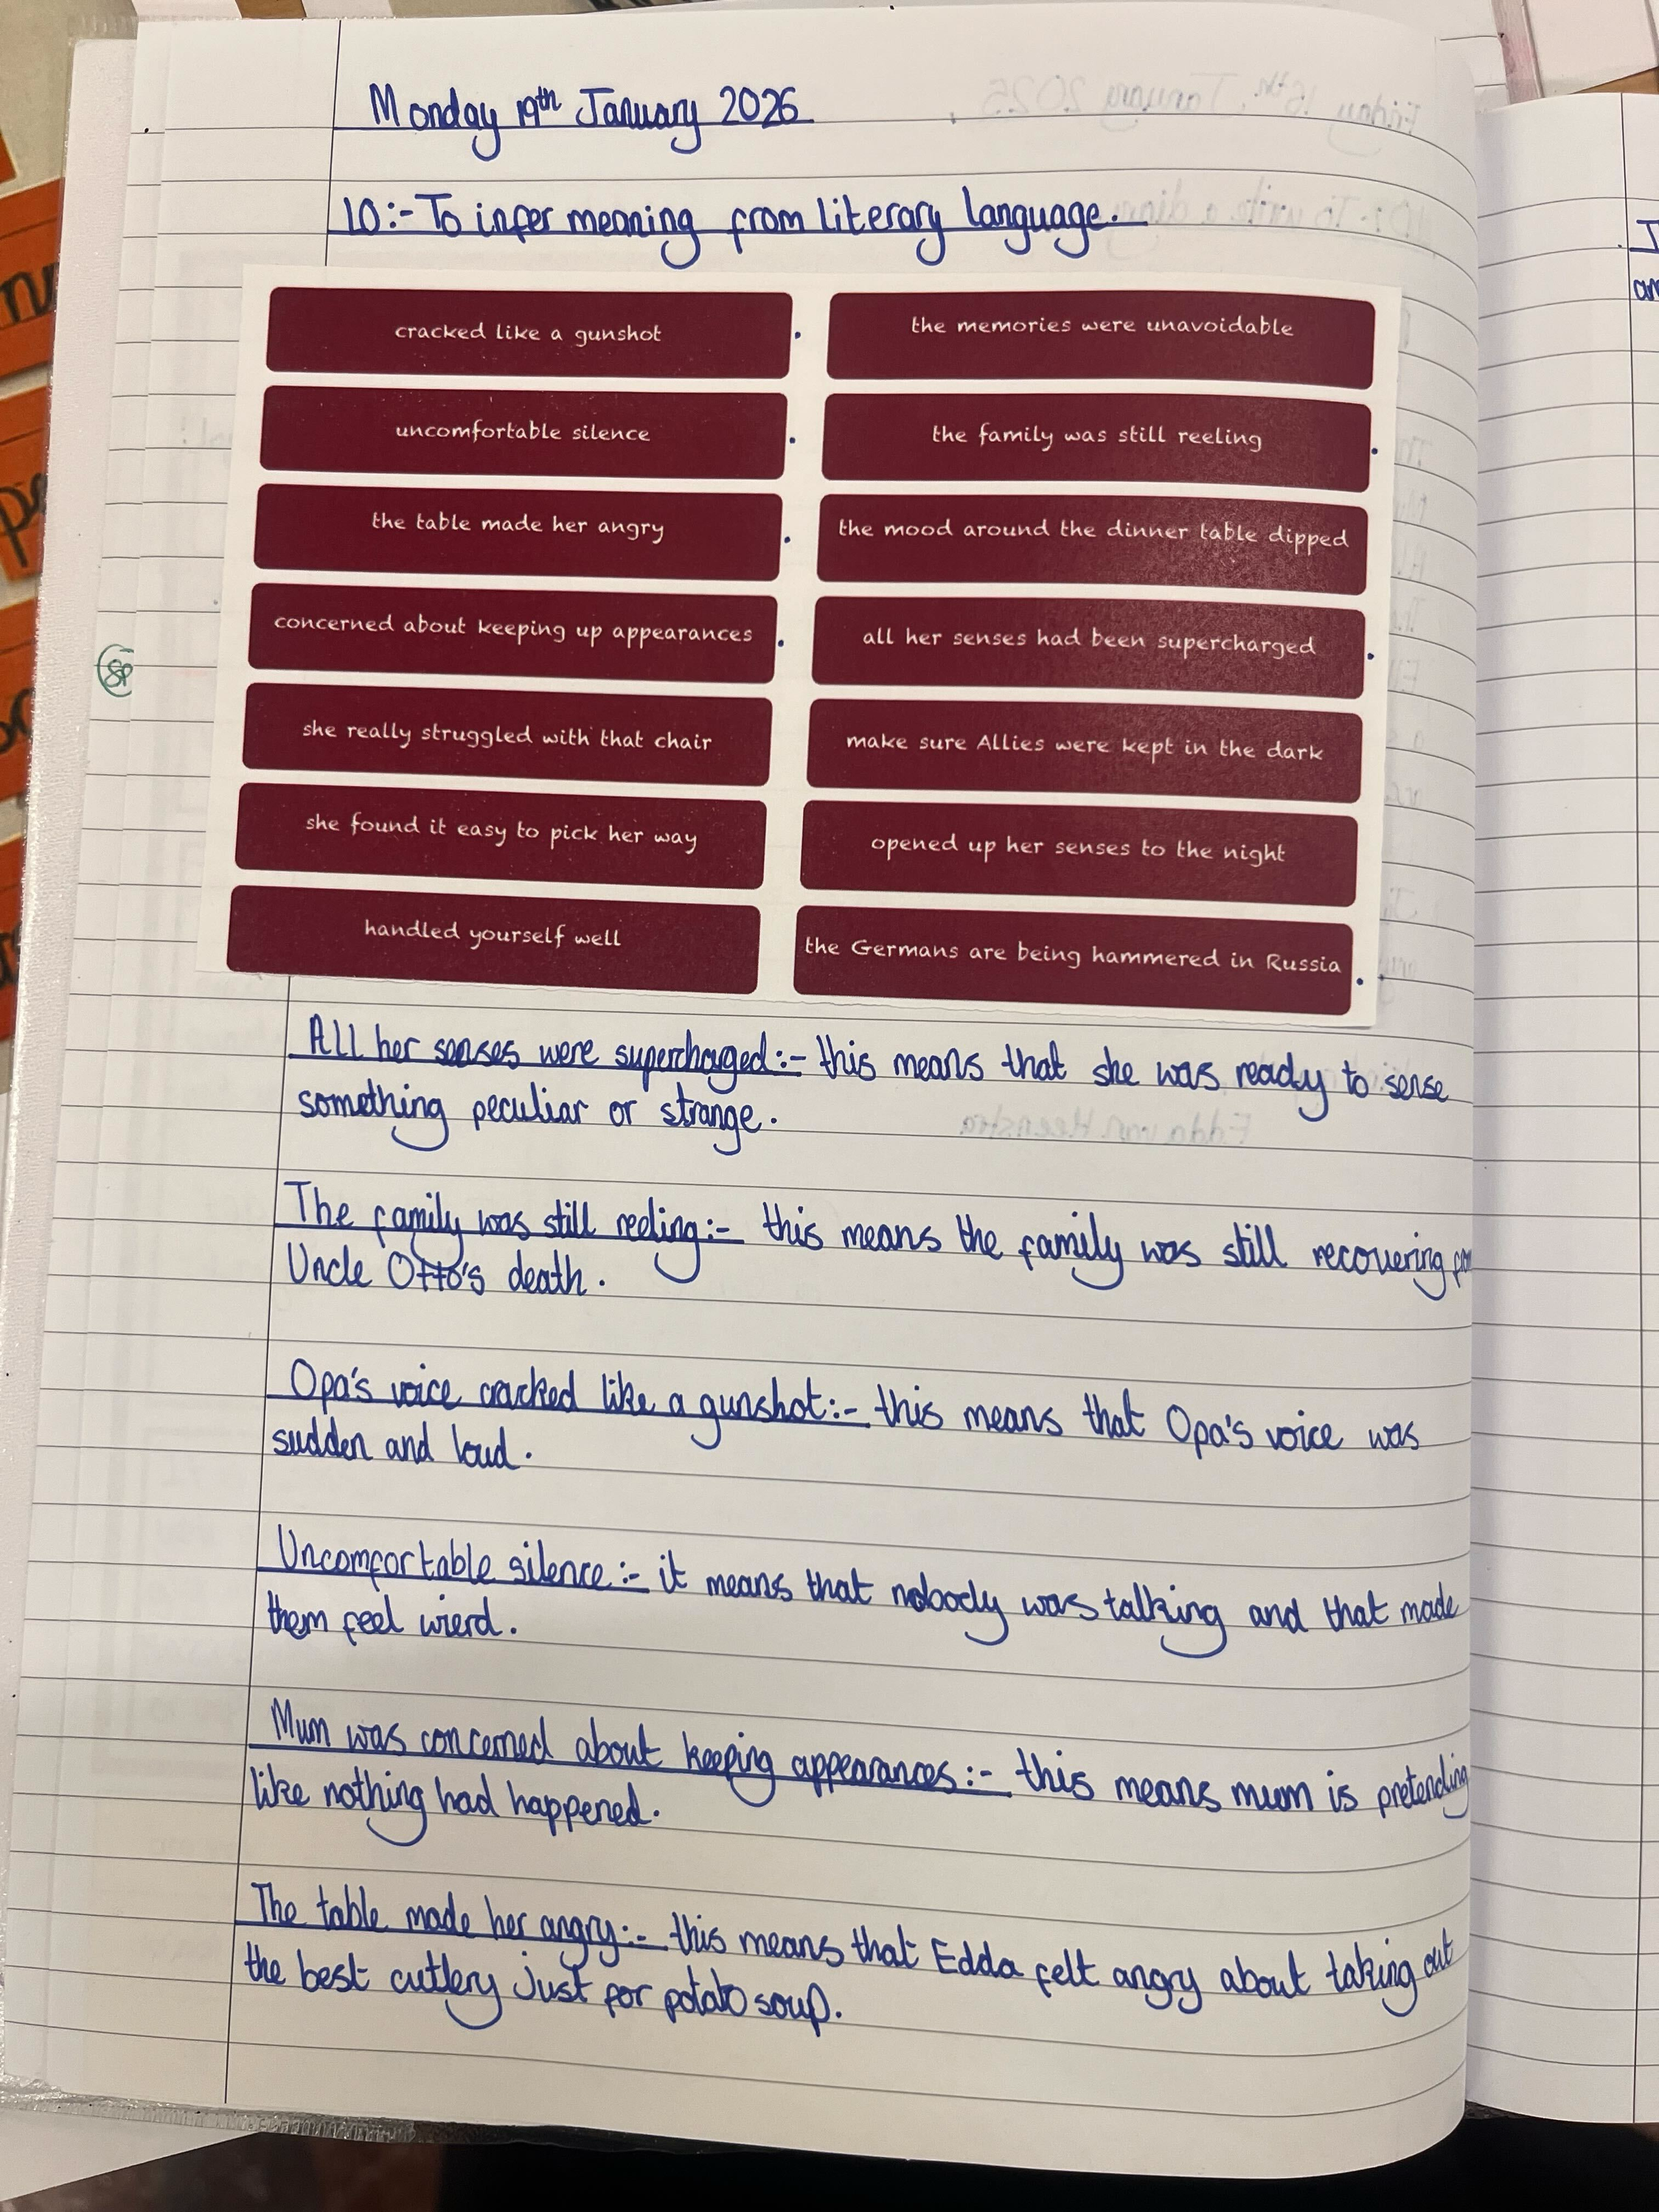 Monday 19th January 2026
LO:- To infer meaning from literary language.
cracked like a gunshot
the memories were unavoidable
uncomfortable silence
the family was still reeling
the table made her angry
the mood around the dinner table dipped
concerned about keeping up appearances
all her senses had been supercharged
she really struggled with that chair
make sure Allies were kept in the dark
she found it easy to pick her way
opened up her senses to the night
handled yourself well
the Germans are being hammered in Russia
All her senses were superchaged:- this means that she was ready to sense
something peculiar or strange.
The family was still reeling:- this means the family was still recovering
Uncle Otto's death.
Opa's voice cracked like a gunshot:- this means that Opa's voice was
sudden and loud.
Uncomfortable silence:- it means that nobody was talking and that made
them feel wierd.
Mum was concerned about keeping appearances:- this means mum is pretending
like nothing had happened.
The table made her angry:- this means that Edda felt angry about taking out
the best cutlery just for potato soup.